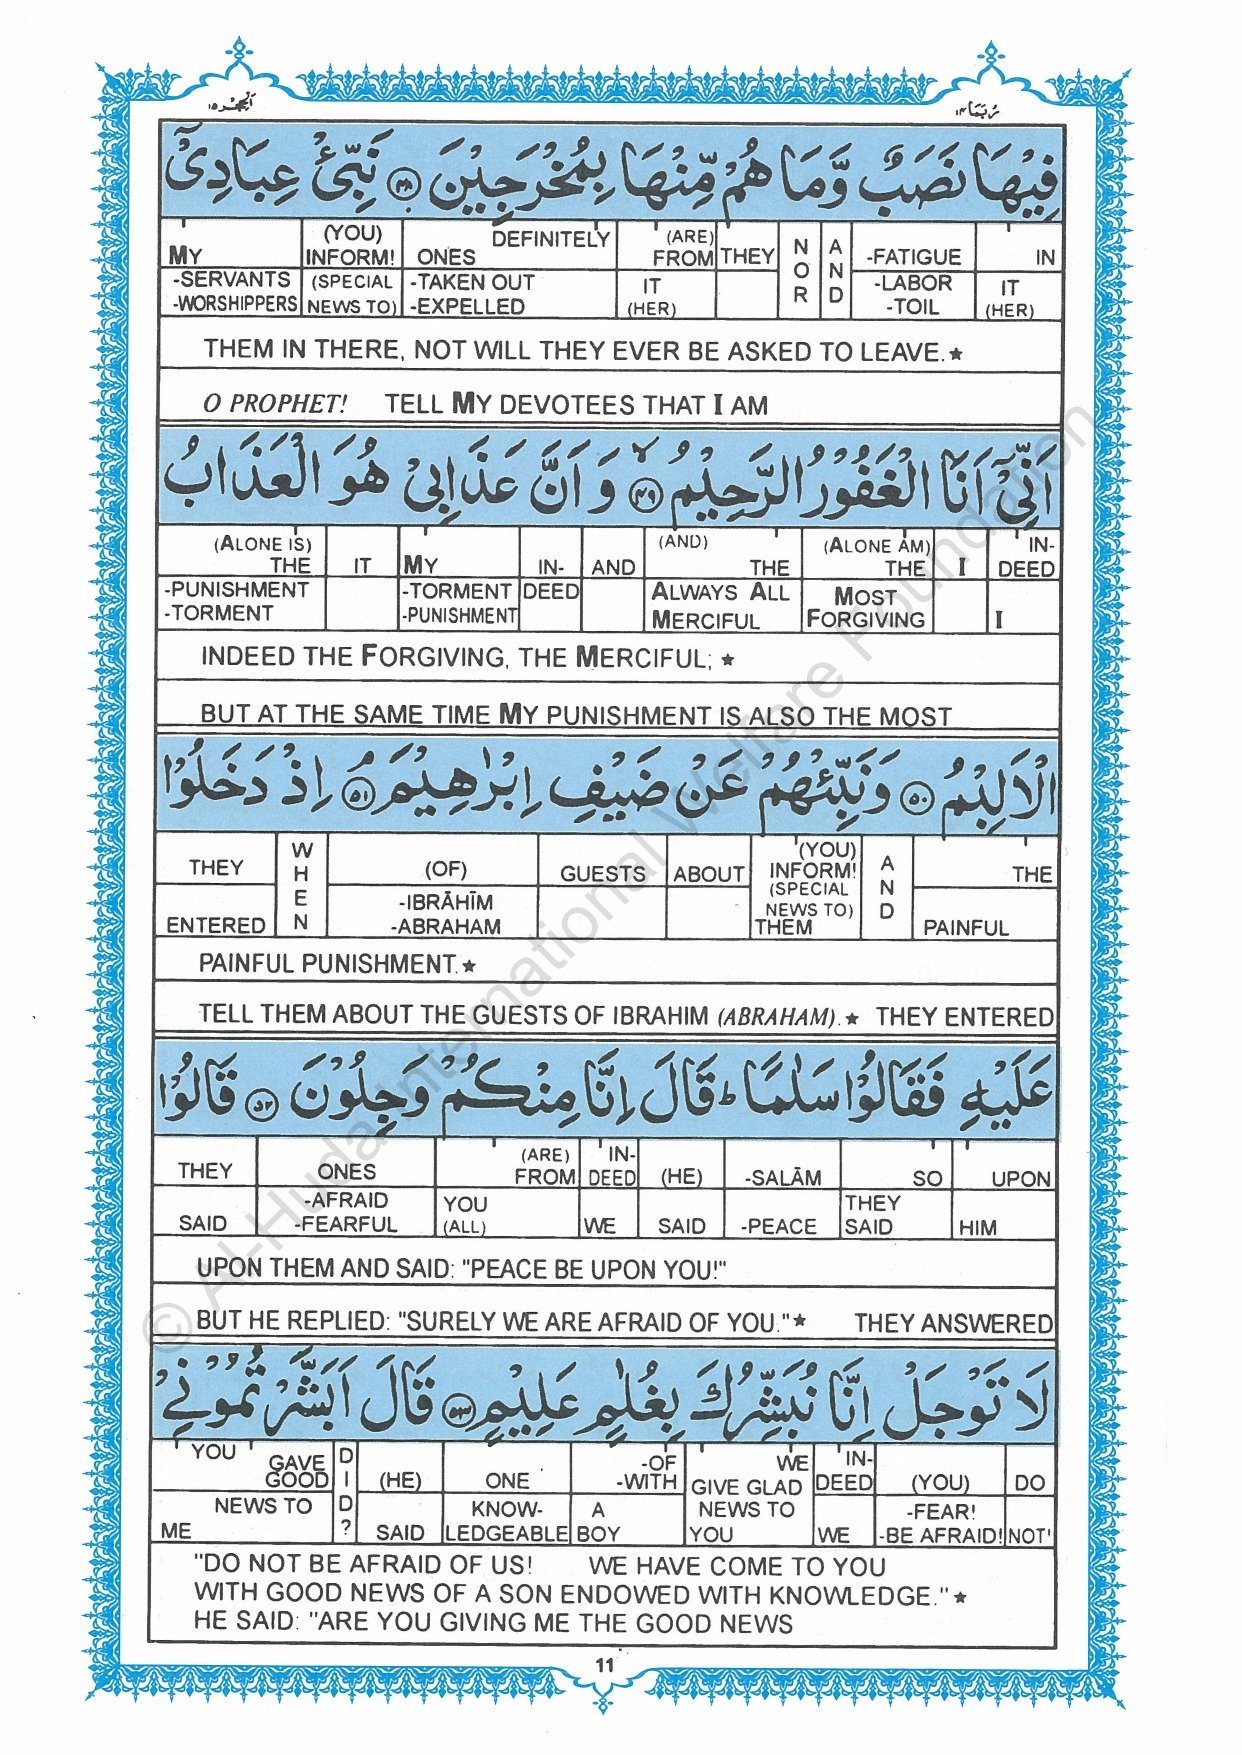 اَلْحِجْر ١٥
رُبَمَا ١٤
فِيْهَا نَصَبٌ وَّمَا هُمْ مِّنْهَا بِمُخْرَجِيْنَ ﴿٤٨﴾ نَبِّئْ عِبَادِيْۤ
MY (YOU) INFORM! ONES DEFINITELY (ARE) FROM THEY NOR AND -FATIGUE IN
-SERVANTS -WORSHIPPERS (SPECIAL NEWS TO) -TAKEN OUT -EXPELLED IT (HER) -LABOR -TOIL IT (HER)
THEM IN THERE, NOT WILL THEY EVER BE ASKED TO LEAVE.★
O PROPHET! TELL MY DEVOTEES THAT I AM
اَنِّيْۤ اَنَا الْغَفُوْرُ الرَّحِيْمُ ﴿٤٩﴾ وَ اَنَّ عَذَابِيْ هُوَ الْعَذَابُ
(ALONE IS) THE IT MY IN- AND (AND) THE (ALONE AM) THE I IN-DEED
-PUNISHMENT -TORMENT -TORMENT -PUNISHMENT DEED ALWAYS ALL MERCIFUL MOST FORGIVING I
INDEED THE FORGIVING, THE MERCIFUL; ★
BUT AT THE SAME TIME MY PUNISHMENT IS ALSO THE MOST
الْاَلِيْمُ ﴿٥٠﴾ وَنَبِّئْهُمْ عَنْ ضَيْفِ اِبْرٰهِيْمَ ﴿٥١﴾ اِذْ دَخَلُوْا
THEY WHEN (OF) GUESTS ABOUT (YOU) INFORM! AND THE
ENTERED -IBRĀHĪM -ABRAHAM (SPECIAL NEWS TO) THEM PAINFUL
PAINFUL PUNISHMENT.★
TELL THEM ABOUT THE GUESTS OF IBRAHIM (ABRAHAM).★ THEY ENTERED
عَلَيْهِ فَقَالُوْا سَلٰمًا ؕ قَالَ اِنَّا مِنْكُمْ وَجِلُوْنَ ﴿٥٢﴾ قَالُوْا
THEY ONES (ARE) FROM IN-DEED (HE) -SALĀM SO UPON
SAID -AFRAID -FEARFUL YOU (ALL) WE SAID -PEACE THEY SAID HIM
UPON THEM AND SAID: "PEACE BE UPON YOU!"
BUT HE REPLIED: "SURELY WE ARE AFRAID OF YOU."★ THEY ANSWERED
لَا تَوْجَلْ اِنَّا نُبَشِّرُكَ بِغُلٰمٍ عَلِيْمٍ ﴿٥٣﴾ قَالَ اَبَشَّرْتُمُوْنِيْ
YOU GAVE GOOD DID? (HE) ONE -OF -WITH WE GIVE GLAD IN-DEED (YOU) DO
NEWS TO ME SAID KNOW-LEDGEABLE A BOY NEWS TO YOU WE -FEAR! -BE AFRAID! NOT!
"DO NOT BE AFRAID OF US! WE HAVE COME TO YOU
WITH GOOD NEWS OF A SON ENDOWED WITH KNOWLEDGE."★
HE SAID: "ARE YOU GIVING ME THE GOOD NEWS
11
© Al-Huda International Welfare Foundation